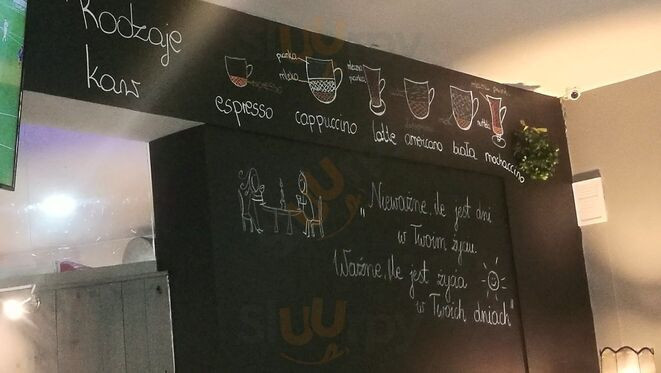 Rodzaje
kaw
pianka
mleko
espresso
espresso
cappuccino
mleczna
pianka
latte
americano
biała
mleczna pianka
mochaccino
„Nieważne, ile jest dni
w Twoim życiu.
Ważne, ile jest życia
w Twoich dniach"